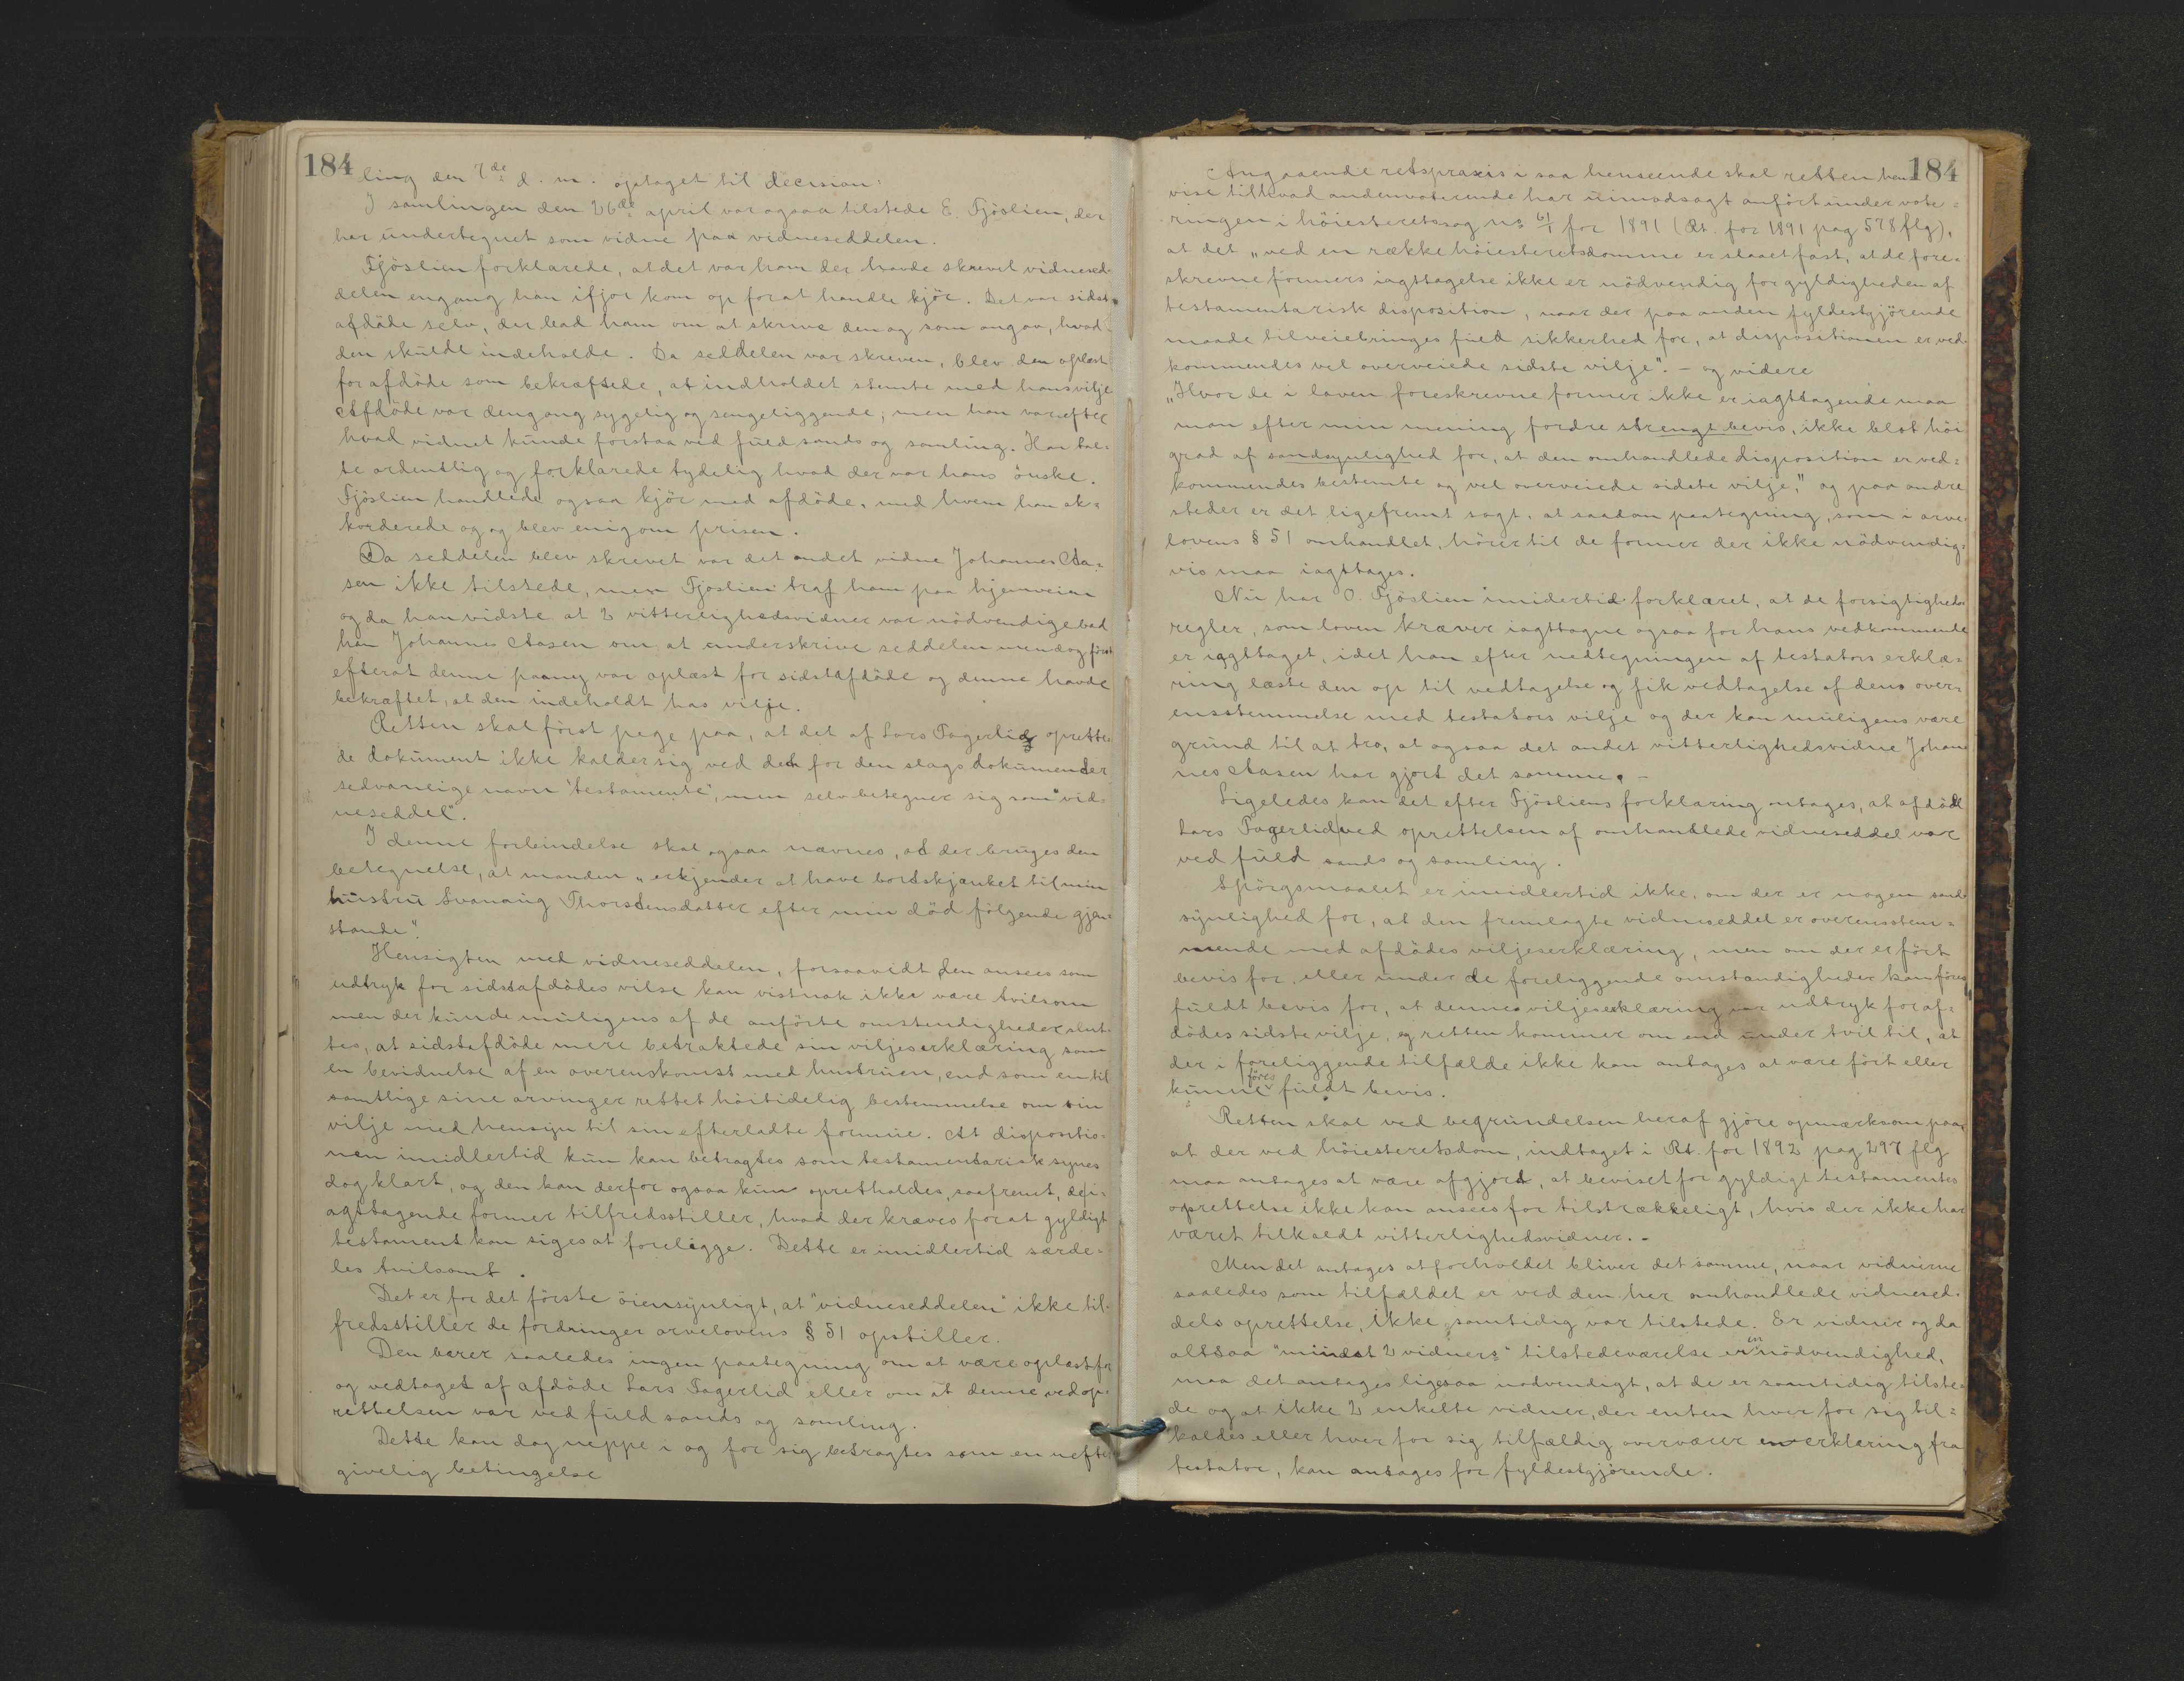 184
ling den 7de d. m. optaget til decision:
I samlingen den 26de april var ogsaa tilstede E. Tjöslien, der
har undertegnet som vidne paa vidneseddelen.
Tjöslien forklarede, at det var ham der havde skrevet vidnesed-
delen engang han ifjor kom op forat handle kjör. Det var sidst
afdöde selv, der bad ham om at skrive den og som angav, hvad
den skulde indeholde. Da seddelen var skreven, blev den oplæst
for afdöde som bekræftede, at indholdet stemte med hans vilje
Afdöde var dengang sygelig og sengeliggende; men han var efter
hvad vidnet kunde forstaa ved fuld sands og samling. Han tal-
te ordentlig og forklarede tydelig hvad der var hans önske.
Tjöslien handlede ogsaa kjör med afdöde, med hvem han ak-
korderede og og blev enig om prisen.
Da seddelen blev skrevet var det andet vidne Johannes Aa-
sen ikke tilstede, men Tjöslien traf ham paa hjemveien
og da han vidste at 2 vitterlighedsvidner var nödvendige bad
han Johannes Aasen om at underskrive seddelen men dog först
efterat denne paany var oplæst for sidstafdöde og denne havde
bekræftet, at den indeholdt has vilje.
Retten skal först pege paa, at det af Lars Fagerlid oprette-
de dokument ikke kalder sig ved det for den slags dokumenter
sedvanlige navn "testamente", men selv betegner sig som "vid-
neseddel".
I denne forbindelse skal ogsaa nævnes, at der bruges den
betegnelse, at manden „erkjender at have bortskjænket til min
hustru Svanaug Thorstensdatter efter min död fölgende gjen-
stande".
Hensigten med vidneseddelen, forsaavidt den ansees som
udtryk for sidstafdödes vilse kan vistnok ikke være tvilsom
men der kunde muligens af de anförte omstendigheder slut-
tes, at sidstafdöde mere betraktede sin viljeserklæring som
en bevidnelse af en overenskomst med hustruen, end som en til
samtlige sine arvinger rettet höitidelig bestemmelse om sin
vilje med hensyn til sin efterladte formue. At dispositio-
nen imidlertid kun kan betragtes som testamentarisk synes
dog klart, og den kan derfor ogsaa kun opretholdes, saafremt, de i-
agttagende former tilfredsstiller, hvad der kræves for at gyldigt
testament kan siges at foreligge. Dette er imidlertid særde-
les tvilsomt.
Det er for det förste öiensynligt, at "vidneseddelen" ikke til-
fredsstiller de fordringer arvelovens § 51 opstiller.
Den bærer saaledes ingen paategning om at være oplæst for
og vedtaget af afdöde Lars Fagerlid eller om at denne ved op-
rettelsen var ved fuld sands og samling.
Dette kan dog neppe i og for sig betragtes som en uefter-
givelig betingelse
184
Angaaende retspraxis i saa henseende skal retten hen-
vise til hvad andenvoterende har uimodsagt anfört under vote-
ringen i höiesteretssag no 61/1 for 1891 (Rt. for 1891 pag 578 flg),
at det „ved en række höiesteretsdomme er slaaet fast, at de fore-
skrevne formers iagttagelse ikke er nödvendig for gyldigheden af
testamentarisk disposition, naar der paa anden fyldestgjörende
maade tilveiebringes fuld sikkerhed for, at dispositionen er ved-
kommendes vel overveiede sidste vilje". - og videre
„Hvor de i loven foreskrevne former ikke er iagttagende maa
man efter min mening fordre strengt bevis, ikke blot höi
grad af sandsynlighed for, at den omhandlede disposition er ved-
kommendes bestemte og vel overveiede sidste vilje," og paa andre
steder er det ligefremt sagt, at saadan paategning, som i arve-
lovens § 51 omhandlet, hörer til de former der ikke nödvendig-
vis maa iagttages.
Nu har O. Tjöslien imidertid forklaret, at de forsigtigheds
regler, som loven kræver iagttagne ogsaa for hans vedkommende
er iagttaget, idet han efter nedtegningen af testators erklæ-
ring læste den op til vedtagelse og fik vedtagelse af dens over-
ensstemmelse med testators vilje og der kan muligens være
grund til at tro, at ogsaa det andet vitterlighedsvidne Johan-
nes Aasen har gjort det samme. -
Ligeledes kan det efter Tjösliens forklaring antages, at afdöde
Lars Fagerlid ved oprettelsen af omhandlede vidneseddel var
ved fuld sands og samling.
Spörgsmaalet er imidlertid ikke, om der er nogen sand-
synlighed for, at den fremlagte vidneseddel er overensstem-
mende med afdödes viljeserklæring, men om der er fört
bevis for, eller under de foreliggende omstændigheder kan föres
fuldt bevis for, at dennes viljeserklæring var udtryk for af-
dödes sidste vilje, og retten kommer om end under tvil til, at
der i foreliggende tilfælde ikke kan antages at være fört eller
kunne föres fuldt bevis.
Retten skal ved begrundelsen heraf gjöre opmærksom paa,
at der ved höiesteretsdom, indtaget i Rt. for 1892 pag 297 flg
maa antages at være afgjort, at beviset for gyldigt testamentes
oprettelse ikke kan ansees for tilstrækkeligt, hvis der ikke har
været tilkaldt vitterlighedsvidner. -
Men det antages at forholdet bliver det samme, naar vidnerne
saaledes som tilfældet er ved den her omhandlede vidnesed-
dels oprettelse, ikke samtidig var tilstede. Er vidner og da
altsaa "mindst 2 vidners" tilstedeværelse en nödvendighed,
maa det antages ligesaa nödvendigt, at de er samtidig tilste-
de og at ikke 2 enkelte vidner, der enten hver for sig til-
kaldes eller hver for sig tilfældig overværer en erklæring fra
testator, kan antages for fyldestgjörende.